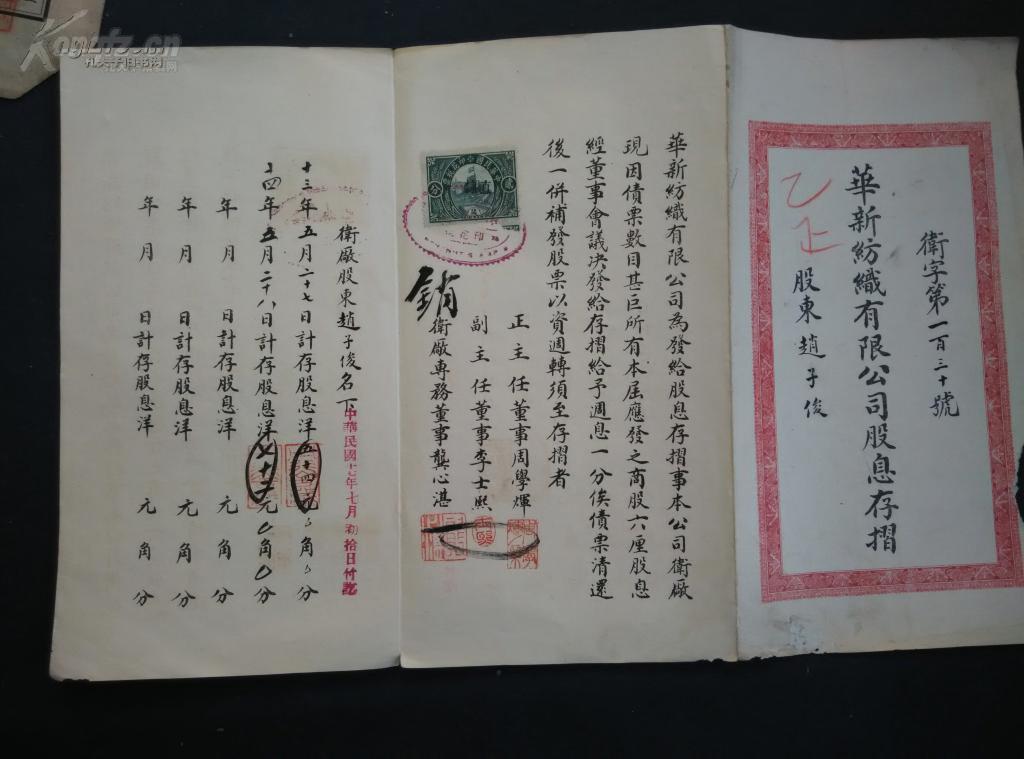 衛字第一百三十號
華新紡織有限公司股息存摺
股東趙子俊
華新紡織有限公司為發給股息存摺事本公司衛廠
現因債票數目甚巨所有本屆應發之商股六厘股息
經董事會議決發給存摺給予週息一分俟債票清還
後一併補發股票以資週轉須至存摺者
正主任董事周學煇
副主任董事李士熙
衛廠專務董事龔心湛
銷
衛廠股東趙子俊名下
中華民國十七年七月初拾日付訖
十三年五月二十七日計存股息洋五十四元 角 分
十四年五月二十八日計存股息洋 元 角 分
年 月 日計存股息洋 元 角 分
年 月 日計存股息洋 元 角 分
年 月 日計存股息洋 元 角 分
孔夫子旧书网